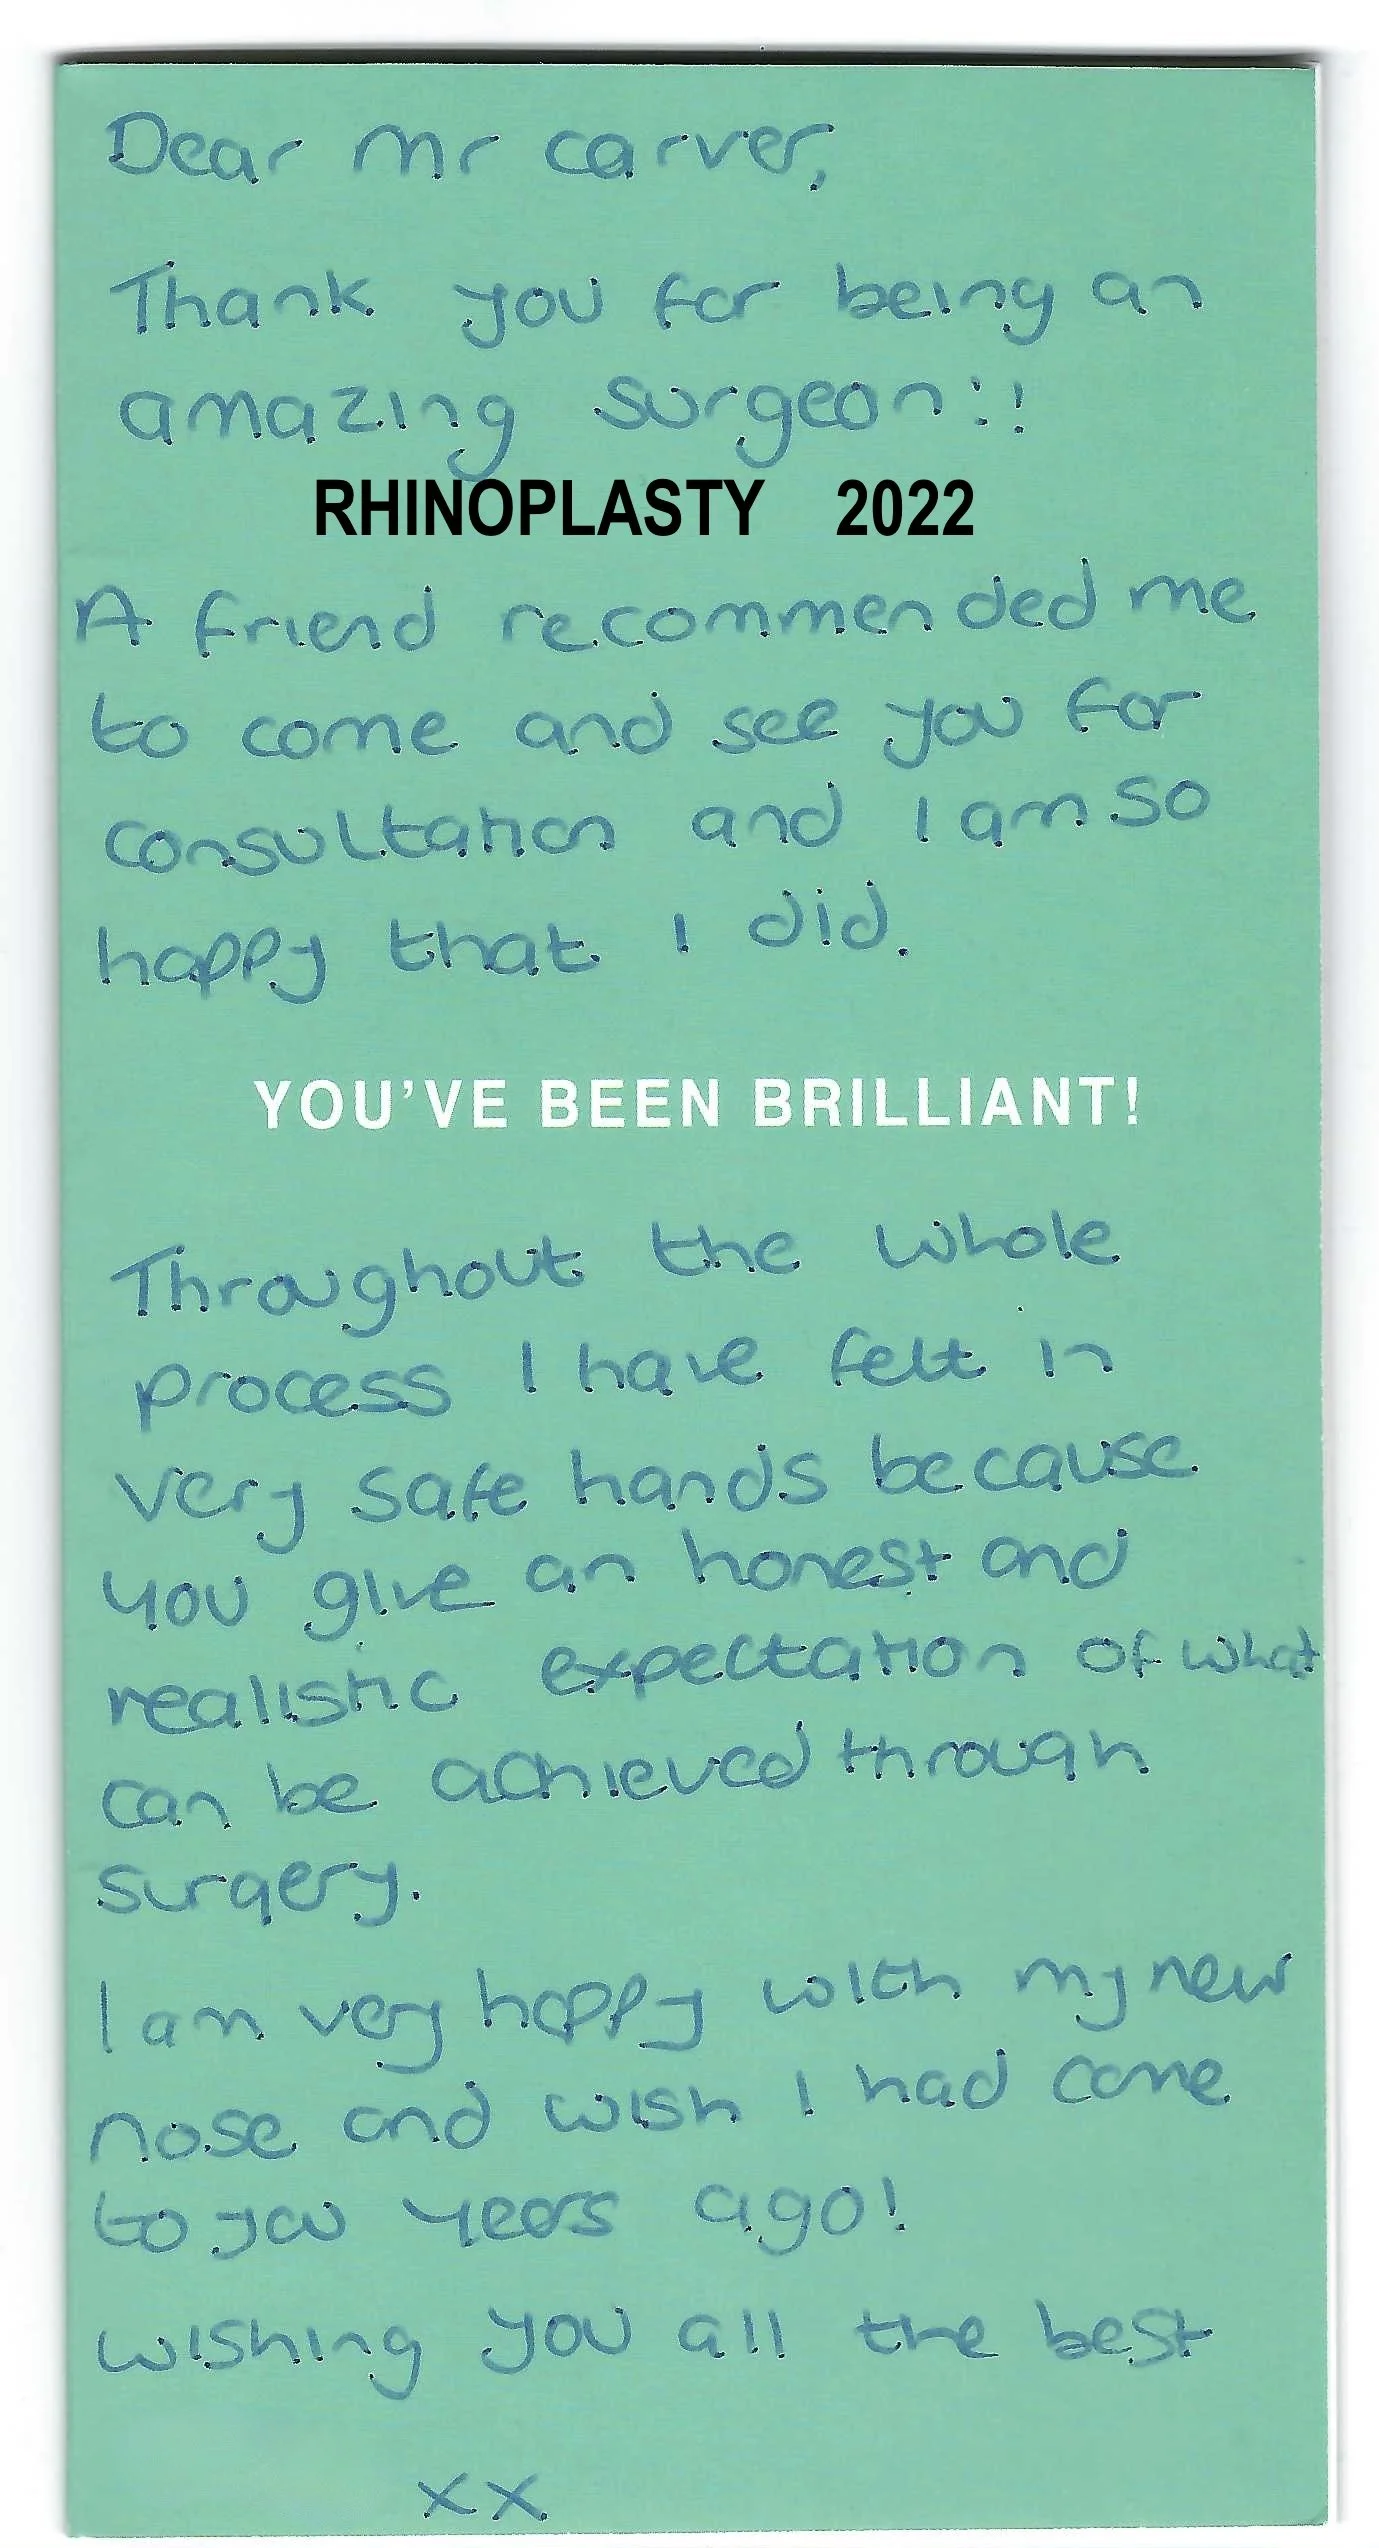 Dear Mr Carver,
Thank you for being an
amazing surgeon!!
RHINOPLASTY 2022
A friend recommended me
to come and see you for
consultation and I am so
happy that I did.
YOU'VE BEEN BRILLIANT!
Throughout the whole
process I have felt in
very safe hands because
you give an honest and
realistic expectation of what
can be achieved through
surgery.
I am very happy with my new
nose and wish I had come
to you years ago!
Wishing you all the best
xx